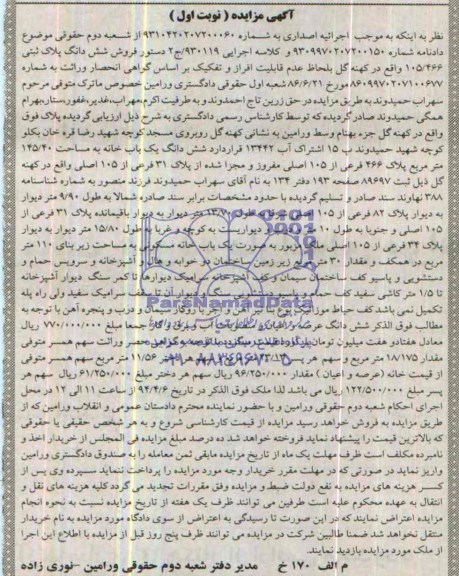 آگهی مزایده ( نوبت اول )
نظر به اینکه به موجب اجرائیه اصداری به شماره ۹۳۱۰۴۲۰۲۰۷۲۰۰۰۶۰ از شعبه دوم حقوقی موضوع
دادنامه شماره ۹۳۰۹۹۷۰۲۰۷۲۰۰۱۵۰ و کلاسه اجرایی ۹۳۰۱۱۹/ج۲ دستور فروش شش دانگ پلاک ثبتی
۱۰۵/۴۶۶ واقع در کهنه گل بلحاظ عدم قابلیت افراز و تفکیک بر اساس گواهی انحصار وراثت به شماره
۸۶۰۹۹۷۰۲۰۷۱۰۰۶۷۷ مورخ ۸۶/۶/۲۱ شعبه اول حقوقی دادگستری ورامین خصوص ماترک متوفی مرحوم
سهراب حمیدوند به طریق مزایده در حق زرین تاج احمدوند و به طرفیت اکرم،مهراب،غدیر،غفور،ستار،بهرام
همگی حمیدوند صادر گردیده که توسط کارشناس رسمی دادگستری به شرح ذیل ارزیابی گردیده پلاک فوق
واقع در کهنه گل جزء بهنام وسط ورامین به نشانی کهنه گل روبروی مسجد کوچه شهید رضا قره خان بکلو
کوچه شهید حمیدوند پ ۱۵ اشتراک آب ۱۳۴۴۲ قراردارد شش دانگ یک باب خانه به مساحت ۱۴۵/۴۰
متر مربع پلاک ۴۶۶ فرعی از ۱۰۵ اصلی مفروز و مجزا شده از پلاک ۳۱ فرعی از ۱۰۵ اصلی واقع در کهنه
گل ذیل ثبت ۸۹۶۹۷ صفحه ۱۹۳ دفتر ۱۳۴ به نام آقای سهراب حمیدوند فرزند منصور به شماره شناسنامه
۳۸۸ نهاوند سند صادر و تسلیم گردیده با حدود مشخصات برابر سند صادره شمالا به طول ۹/۹۰ متر دیوار
به دیوار پلاک ۸۲ فرعی از ۱۰۵ اصلی شرقا به طول ۱۳/۷۰ متر دیوار به دیوار باقیمانده پلاک ۳۱ فرعی از
۱۰۵ اصلی و جنوبا به طول ۱۰ متر دیواریست به کوچه و غربا به طول ۱۵/۸۰ متر دیوار به دیوار
پلاک ۳۴ فرعی از ۱۰۵ اصلی مزبور به صورت یک باب خانه مسکونی به مساحت زیر بنای ۱۱۰ متر
مربع در همکف و مقدار ۳۰ متر مربع زیر زمین ساختمان خوابه و هال و آشپزخانه و سرویس حمام و
دستشویی و پاسیو کف ساختمان و کف آشپزخانه سرامیک دیوارها تا کمر سنگ دیوار آشپزخانه
تا ۱/۵ متر کاشی سفید کف حمام و پاسیو دستشویی سنگ و دیوار آن تا سقف سرامیک سفید ولی راه پله
تکمیل نمی باشد کف حیاط موزائیک و درب و پنجره آهن با توجه به
مطالب فوق الذکر شش دانگ عرصه و اعیان جمعا مبلغ ۷۷۰/۰۰۰/۰۰۰ ریال
معادل هفتادو هفت میلیون تومان حصر وراثت سهم همسر متوفی
مقدار ۱۸/۱۷۵ متر مربع و سهم هر پسر متر مربع و سهم هر دختر ۱۱/۵۶ متر مربع سهم همسر متوفی
از قیمت خانه (عرصه و اعیان ) مقدار ۹۶/۲۵۰/۰۰۰ ریال سهم هر دختر مبلغ ۶۱/۲۵۰/۰۰۰ ریال سهم هر
پسر مبلغ ۱۲۲/۵۰۰/۰۰۰ ریال می باشد لذا ملک فوق الذکر در تاریخ ۹۴/۴/۶ از ساعت ۱۱ الی ۱۲ در محل
اجرای احکام شعبه دوم حقوقی ورامین و با حضور نماینده محترم دادستان عمومی و انقلاب ورامین که از
طریق مزایده به فروش خواهد رسید مزایده از قیمت کارشناسی شروع و به هر شخص حقیقی یا حقوقی
که بالاترین قیمت را پیشنهاد نماید فروخته خواهد شد ده درصد مبلغ مزایده فی المجلس از خریدار اخذ و
نامبرده مکلف است ظرف مهلت یک ماه از تاریخ مزایده مابقی ثمن معامله را به صندوق دادگستری ورامین
واریز نماید در صورتی که در مهلت مقرر خریدار وجه مورد مزایده را پرداخت ننماید سپرده وی پس از
کسر هزینه های مزایده به نفع دولت ضبط و مزایده وفق مقررات تجدید می گردد کلیه هزینه های نقل و
انتقال به عهده محکوم علیه است طرفین می توانند ظرف یک هفته از تاریخ مزایده نسبت به نحوه انجام
مزایده اعتراض نمایند که در این صورت تا رسیدگی به اعتراض از سوی دادگاه مورد مزایده به نام خریدار
منتقل نخواهد شد ضمنا طالبین شرکت در مزایده می توانند ظرف پنج روز قبل از مزایده با اطلاع این اجرا
از ملک مورد مزایده بازدید نمایند.
م الف ۱۷۰ خ مدیر دفتر شعبه دوم حقوقی ورامین –نوری زاده
ParsNamadData